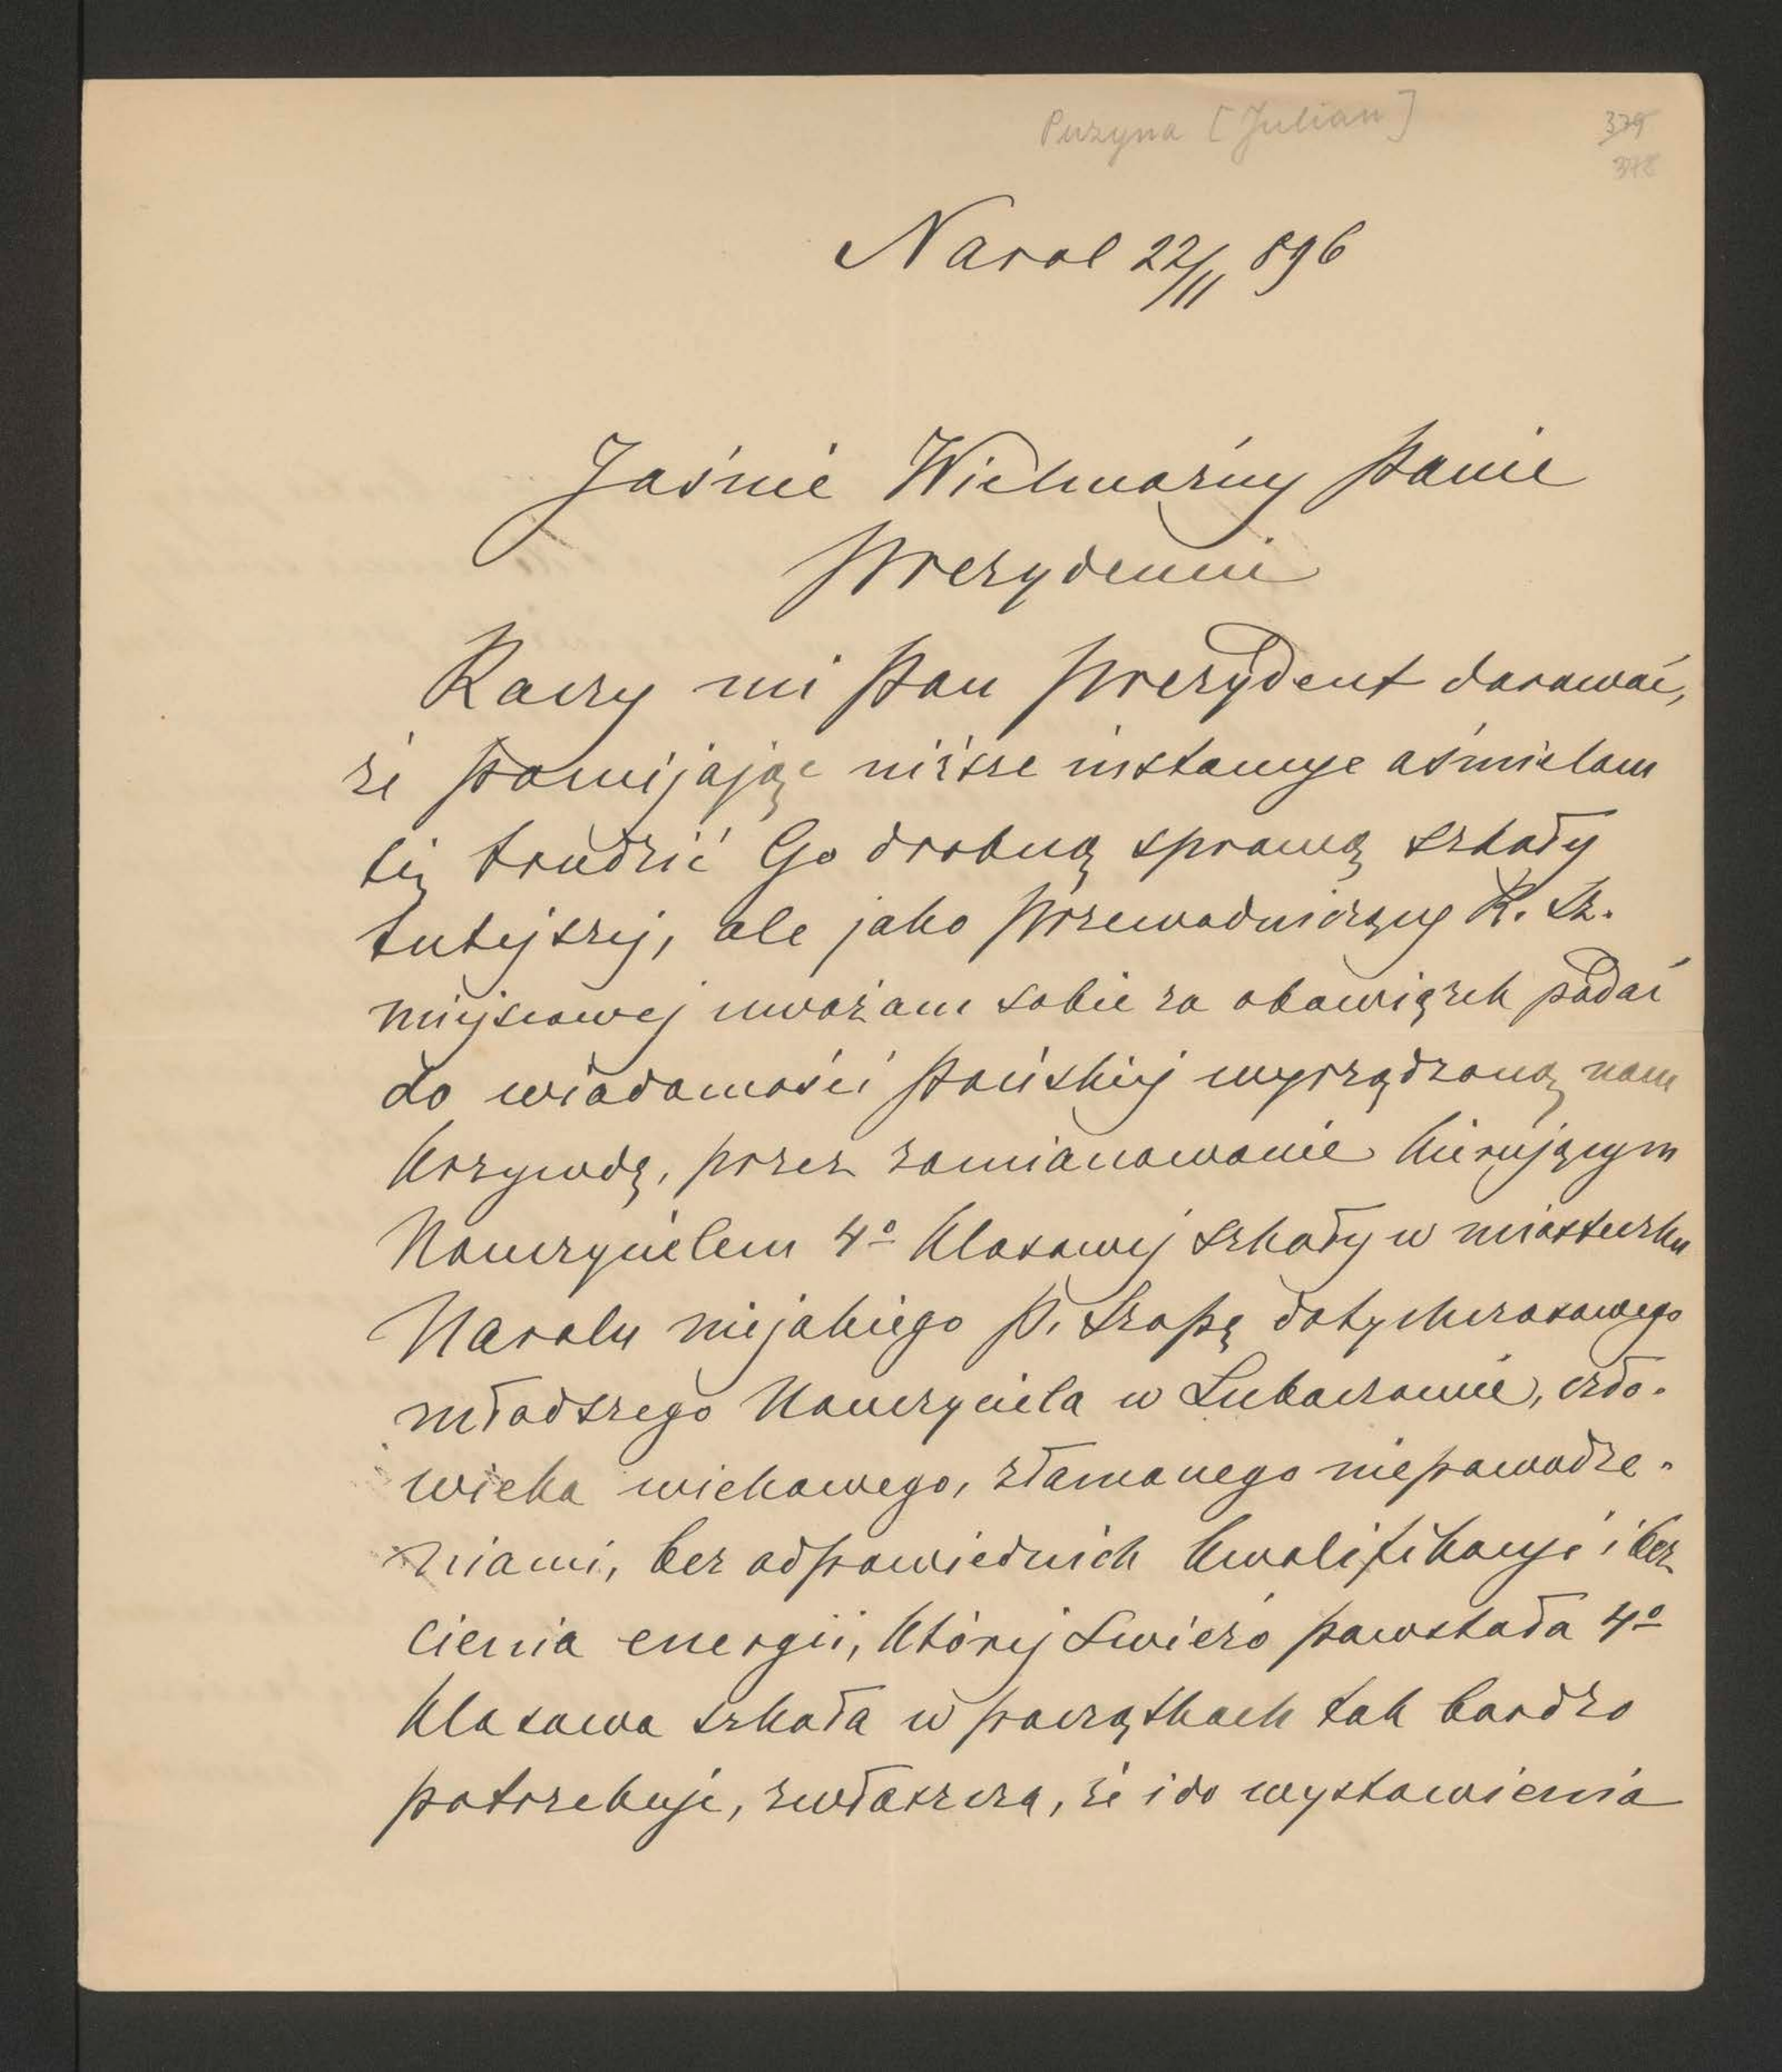 Puzyna [Julian]
379
378
Narol 22/11 896
Jaśnie Wielmożny Panie
Prezydencie
Raczy mi Pan Prezydent darować,
że pomijając niższe instancye ośmielam
się trudzić Go drobną sprawą szkoły
tutejszej, ale jako Przewodniczący R. Sz.
miejscowej uważam sobie za obowiązek podać
do wiadomości Pańskiej wyrządzoną nam
krzywdę, przez zamianowanie kierującym
Nauczycielem 4o klasowej szkoły w miasteczku
Narolu niejakiego P. Szopę dotychczasowego
młodszego Nauczyciela w Lubaczowie, czło-
wieka wiekowego, złamanego niepowodze-
niami, bez odpowiednich kwalifikacyi i bez
cienia energii, której świeżo powstała 4o
klasowa szkoła w początkach tak bardzo
potrzebuje, zwłaszcza, że i do wystawienia